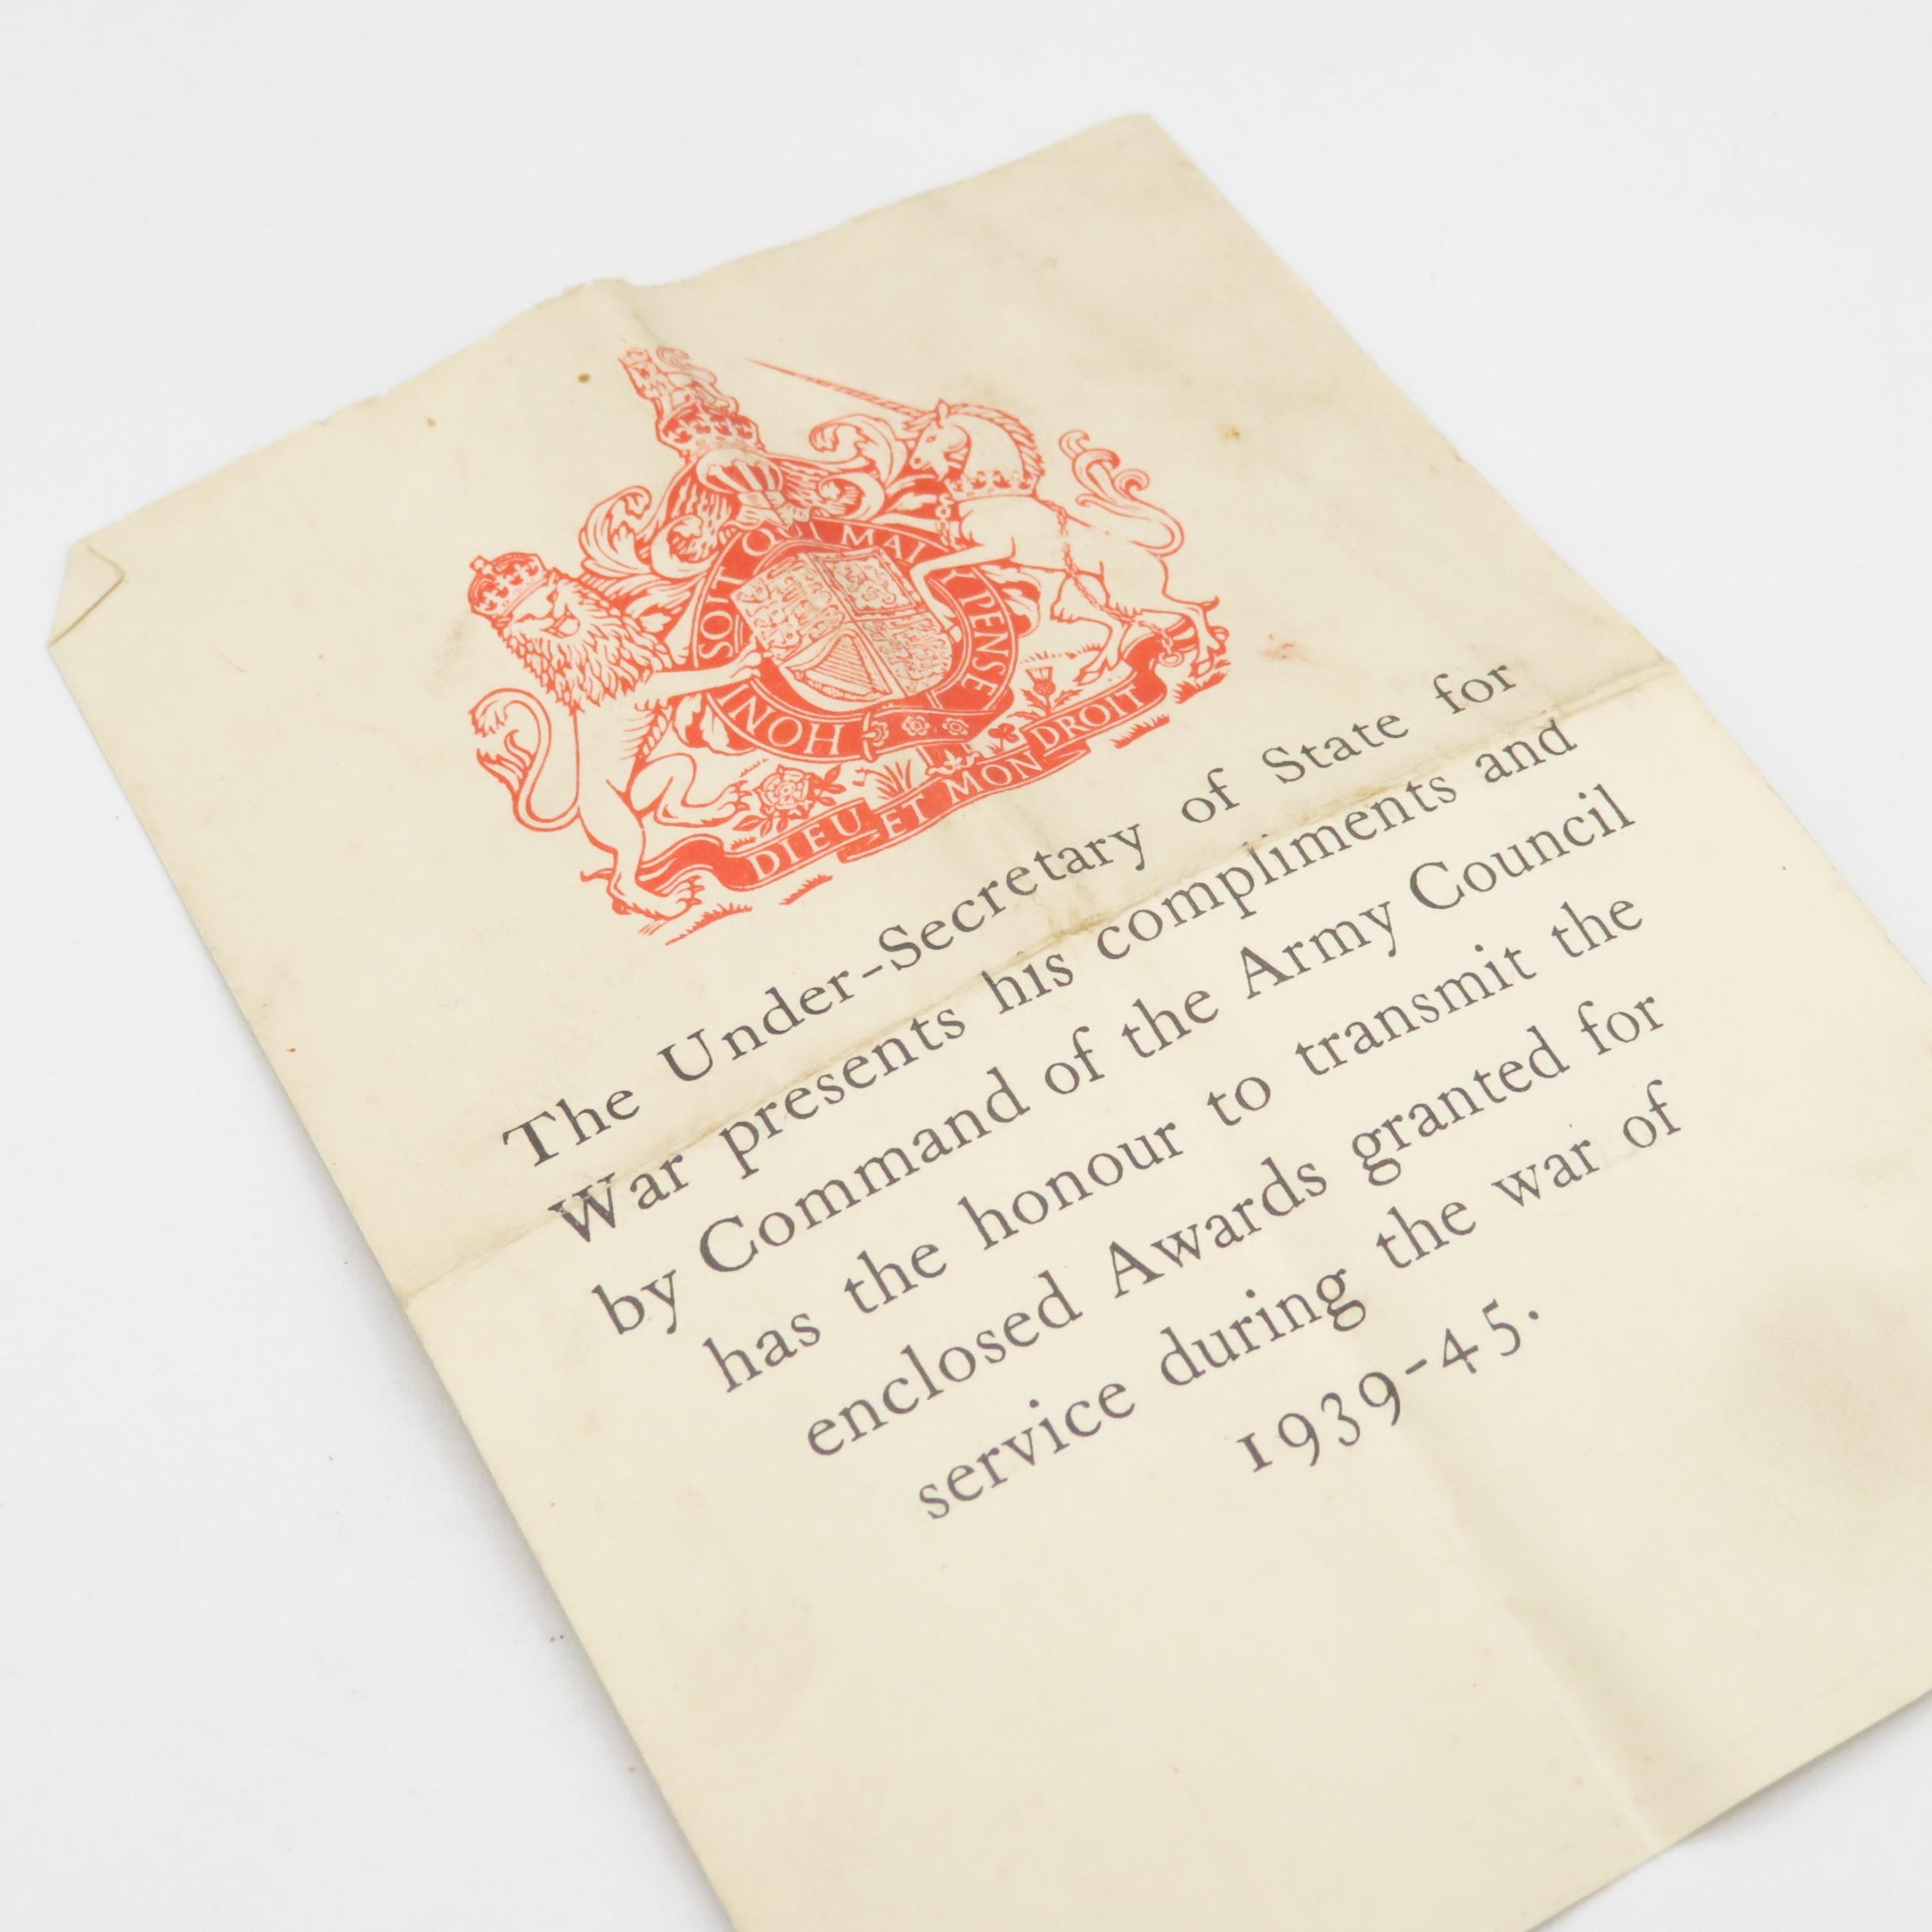 HONI SOIT QUI MAL Y PENSE
DIEU ET MON DROIT
The Under-Secretary of State for
War presents his compliments and
by Command of the Army Council
has the honour to transmit the
enclosed Awards granted for
service during the war of
1939-45.